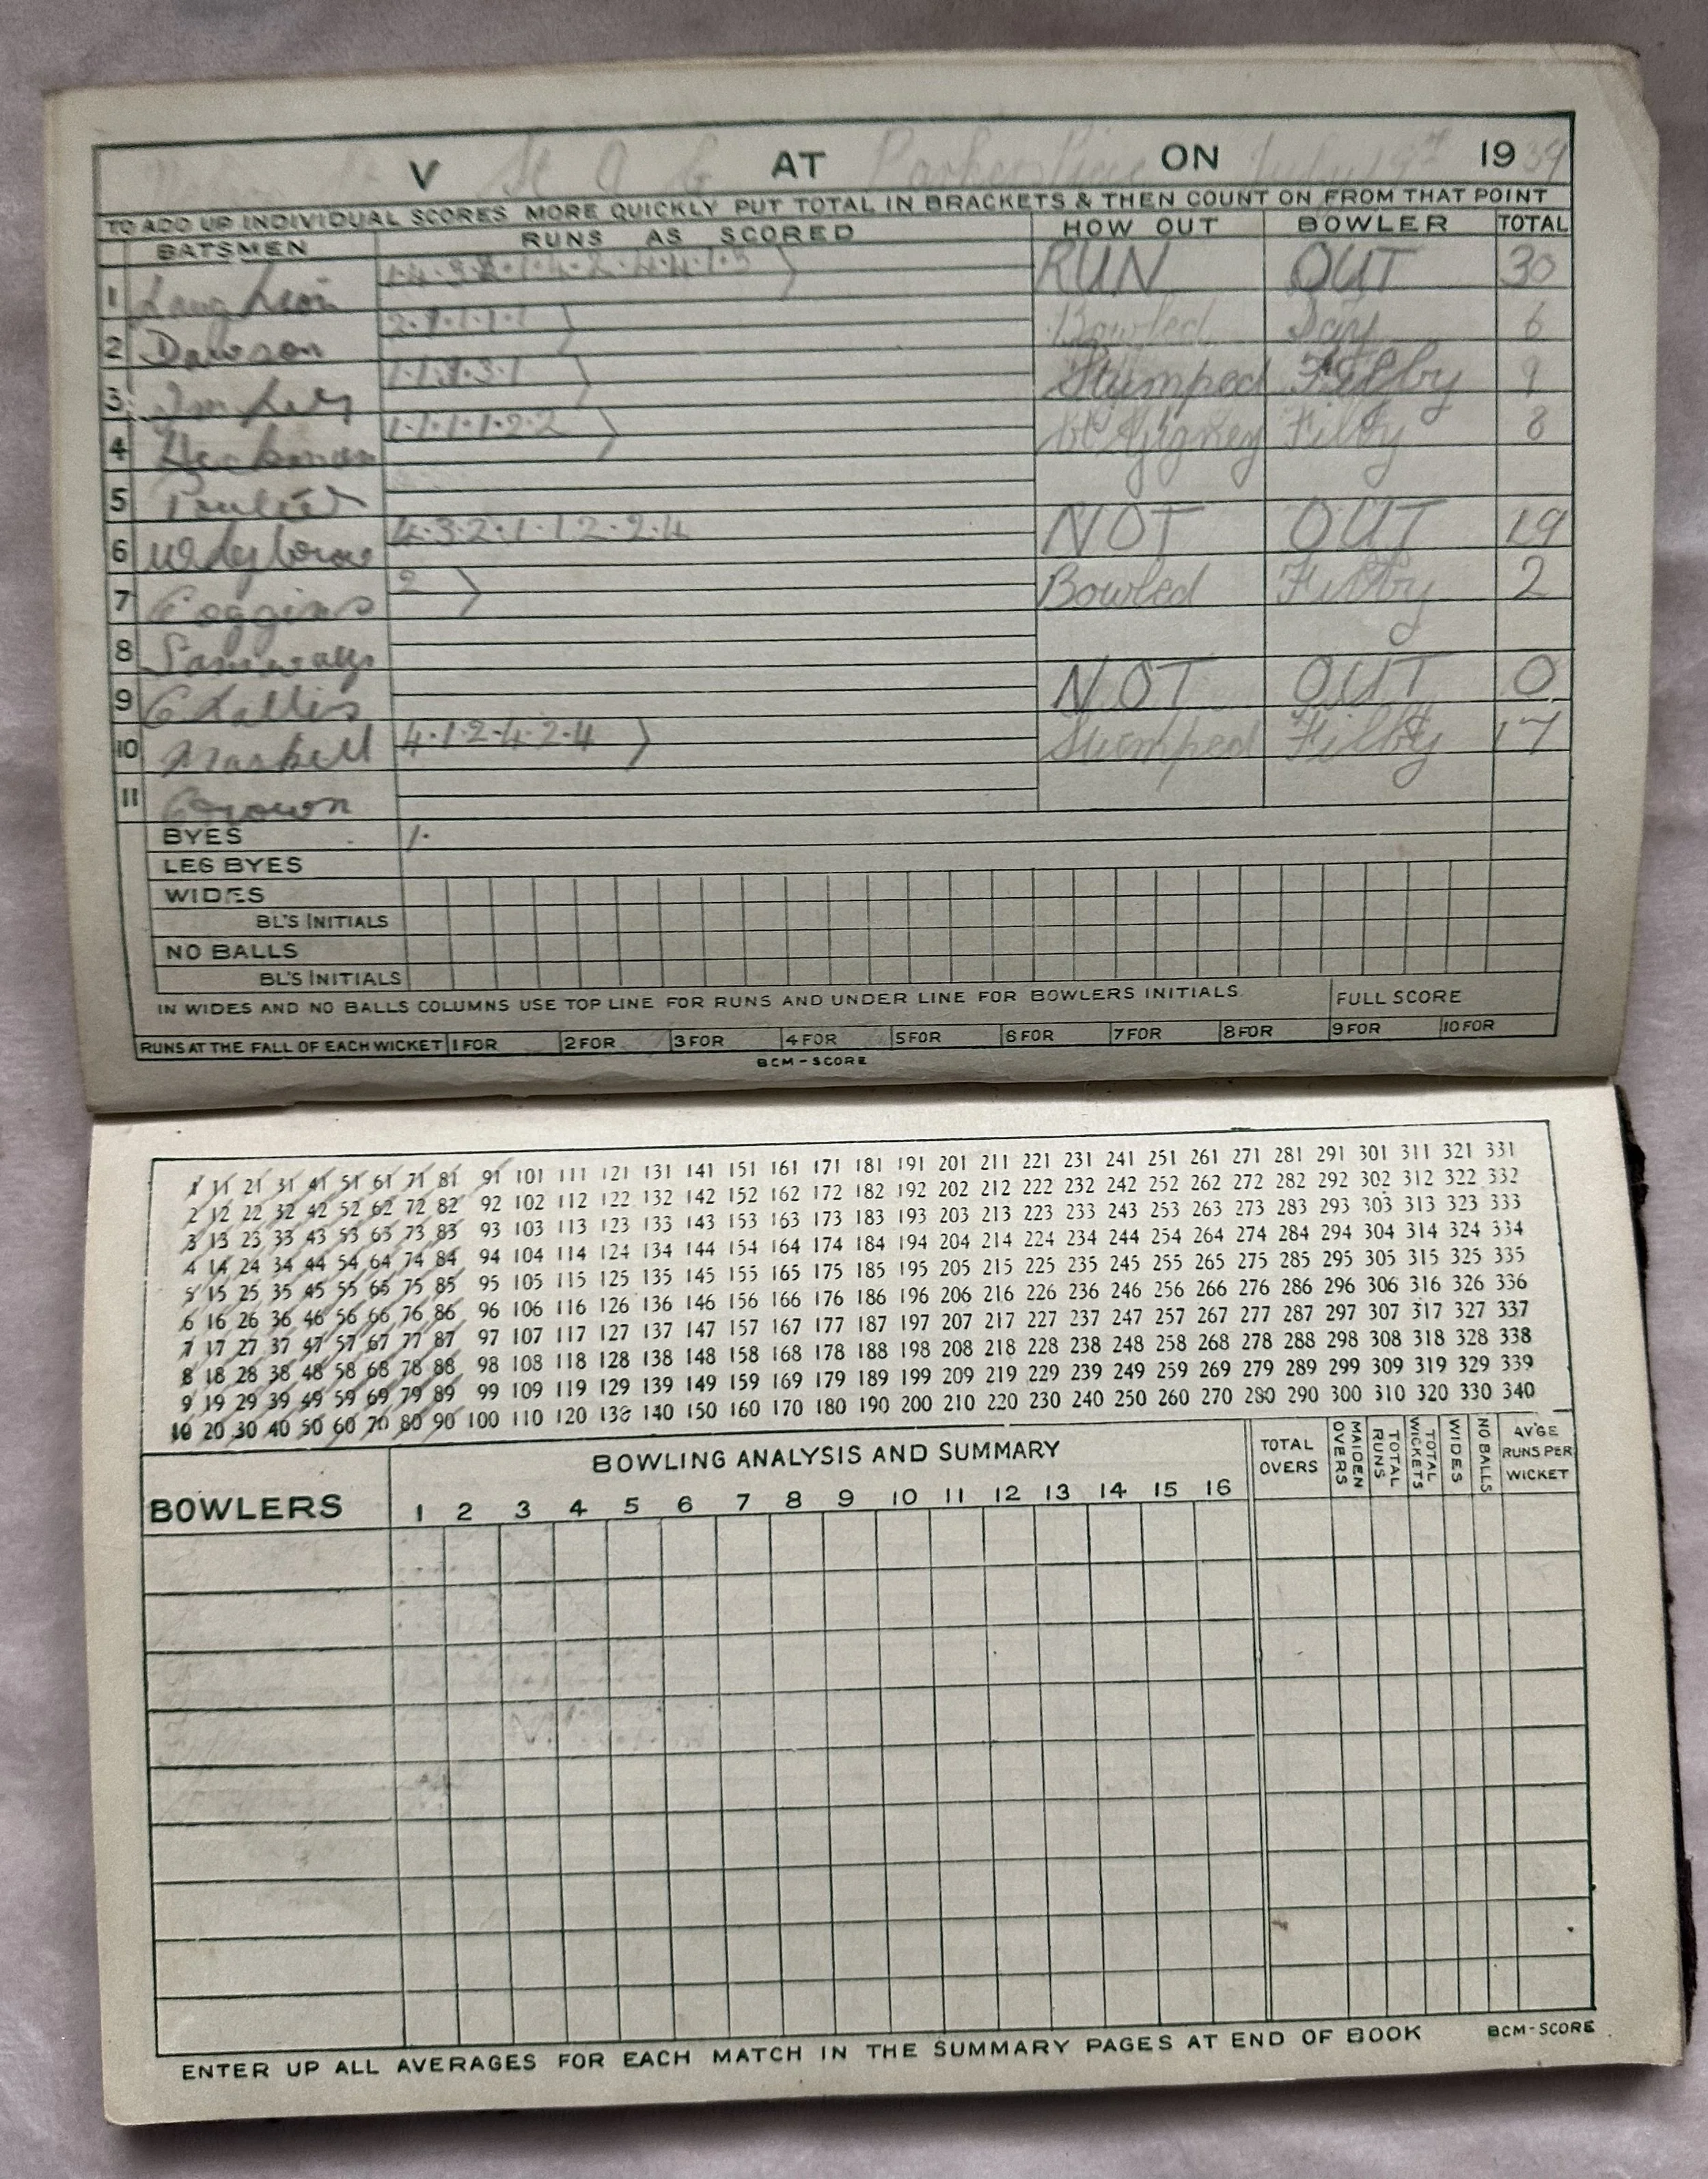 V St O G AT Parkers Piece ON July 19th 1939
TO ADD UP INDIVIDUAL SCORES MORE QUICKLY PUT TOTAL IN BRACKETS & THEN COUNT ON FROM THAT POINT
BATSMEN RUNS AS SCORED HOW OUT BOWLER TOTAL
1 RUN OUT 30
2 Dawson 2·1·1·1·1 ) Bowled Day 6
3 Stumped Filby 9
4 1·1·1·1·2·2 ) Filby 8
5
6 4·3·2·1·1·2·2·4 NOT OUT 19
7 Coggins 2 ) Bowled Filby 2
8 Samways
9 Challis NOT OUT 0
10 Maskell 4·1·2·4·2·4 ) Stumped Filby 17
11 Crown
BYES 1·
LEG BYES
WIDES
BL'S INITIALS
NO BALLS
BL'S INITIALS
IN WIDES AND NO BALLS COLUMNS USE TOP LINE FOR RUNS AND UNDER LINE FOR BOWLERS INITIALS. FULL SCORE
RUNS AT THE FALL OF EACH WICKET 1 FOR 2 FOR 3 FOR 4 FOR 5 FOR 6 FOR 7 FOR 8 FOR 9 FOR 10 FOR
BCM-SCORE
1 11 21 31 41 51 61 71 81 91 101 111 121 131 141 151 161 171 181 191 201 211 221 231 241 251 261 271 281 291 301 311 321 331
2 12 22 32 42 52 62 72 82 92 102 112 122 132 142 152 162 172 182 192 202 212 222 232 242 252 262 272 282 292 302 312 322 332
3 13 23 33 43 53 63 73 83 93 103 113 123 133 143 153 163 173 183 193 203 213 223 233 243 253 263 273 283 293 303 313 323 333
4 14 24 34 44 54 64 74 84 94 104 114 124 134 144 154 164 174 184 194 204 214 224 234 244 254 264 274 284 294 304 314 324 334
5 15 25 35 45 55 65 75 85 95 105 115 125 135 145 155 165 175 185 195 205 215 225 235 245 255 265 275 285 295 305 315 325 335
6 16 26 36 46 56 66 76 86 96 106 116 126 136 146 156 166 176 186 196 206 216 226 236 246 256 266 276 286 296 306 316 326 336
7 17 27 37 47 57 67 77 87 97 107 117 127 137 147 157 167 177 187 197 207 217 227 237 247 257 267 277 287 297 307 317 327 337
8 18 28 38 48 58 68 78 88 98 108 118 128 138 148 158 168 178 188 198 208 218 228 238 248 258 268 278 288 298 308 318 328 338
9 19 29 39 49 59 69 79 89 99 109 119 129 139 149 159 169 179 189 199 209 219 229 239 249 259 269 279 289 299 309 319 329 339
10 20 30 40 50 60 70 80 90 100 110 120 130 140 150 160 170 180 190 200 210 220 230 240 250 260 270 280 290 300 310 320 330 340
BOWLERS BOWLING ANALYSIS AND SUMMARY TOTAL OVERS MAIDEN OVERS TOTAL RUNS TOTAL WICKETS WIDES NO BALLS AV'GE RUNS PER WICKET
1 2 3 4 5 6 7 8 9 10 11 12 13 14 15 16
ENTER UP ALL AVERAGES FOR EACH MATCH IN THE SUMMARY PAGES AT END OF BOOK BCM-SCORE